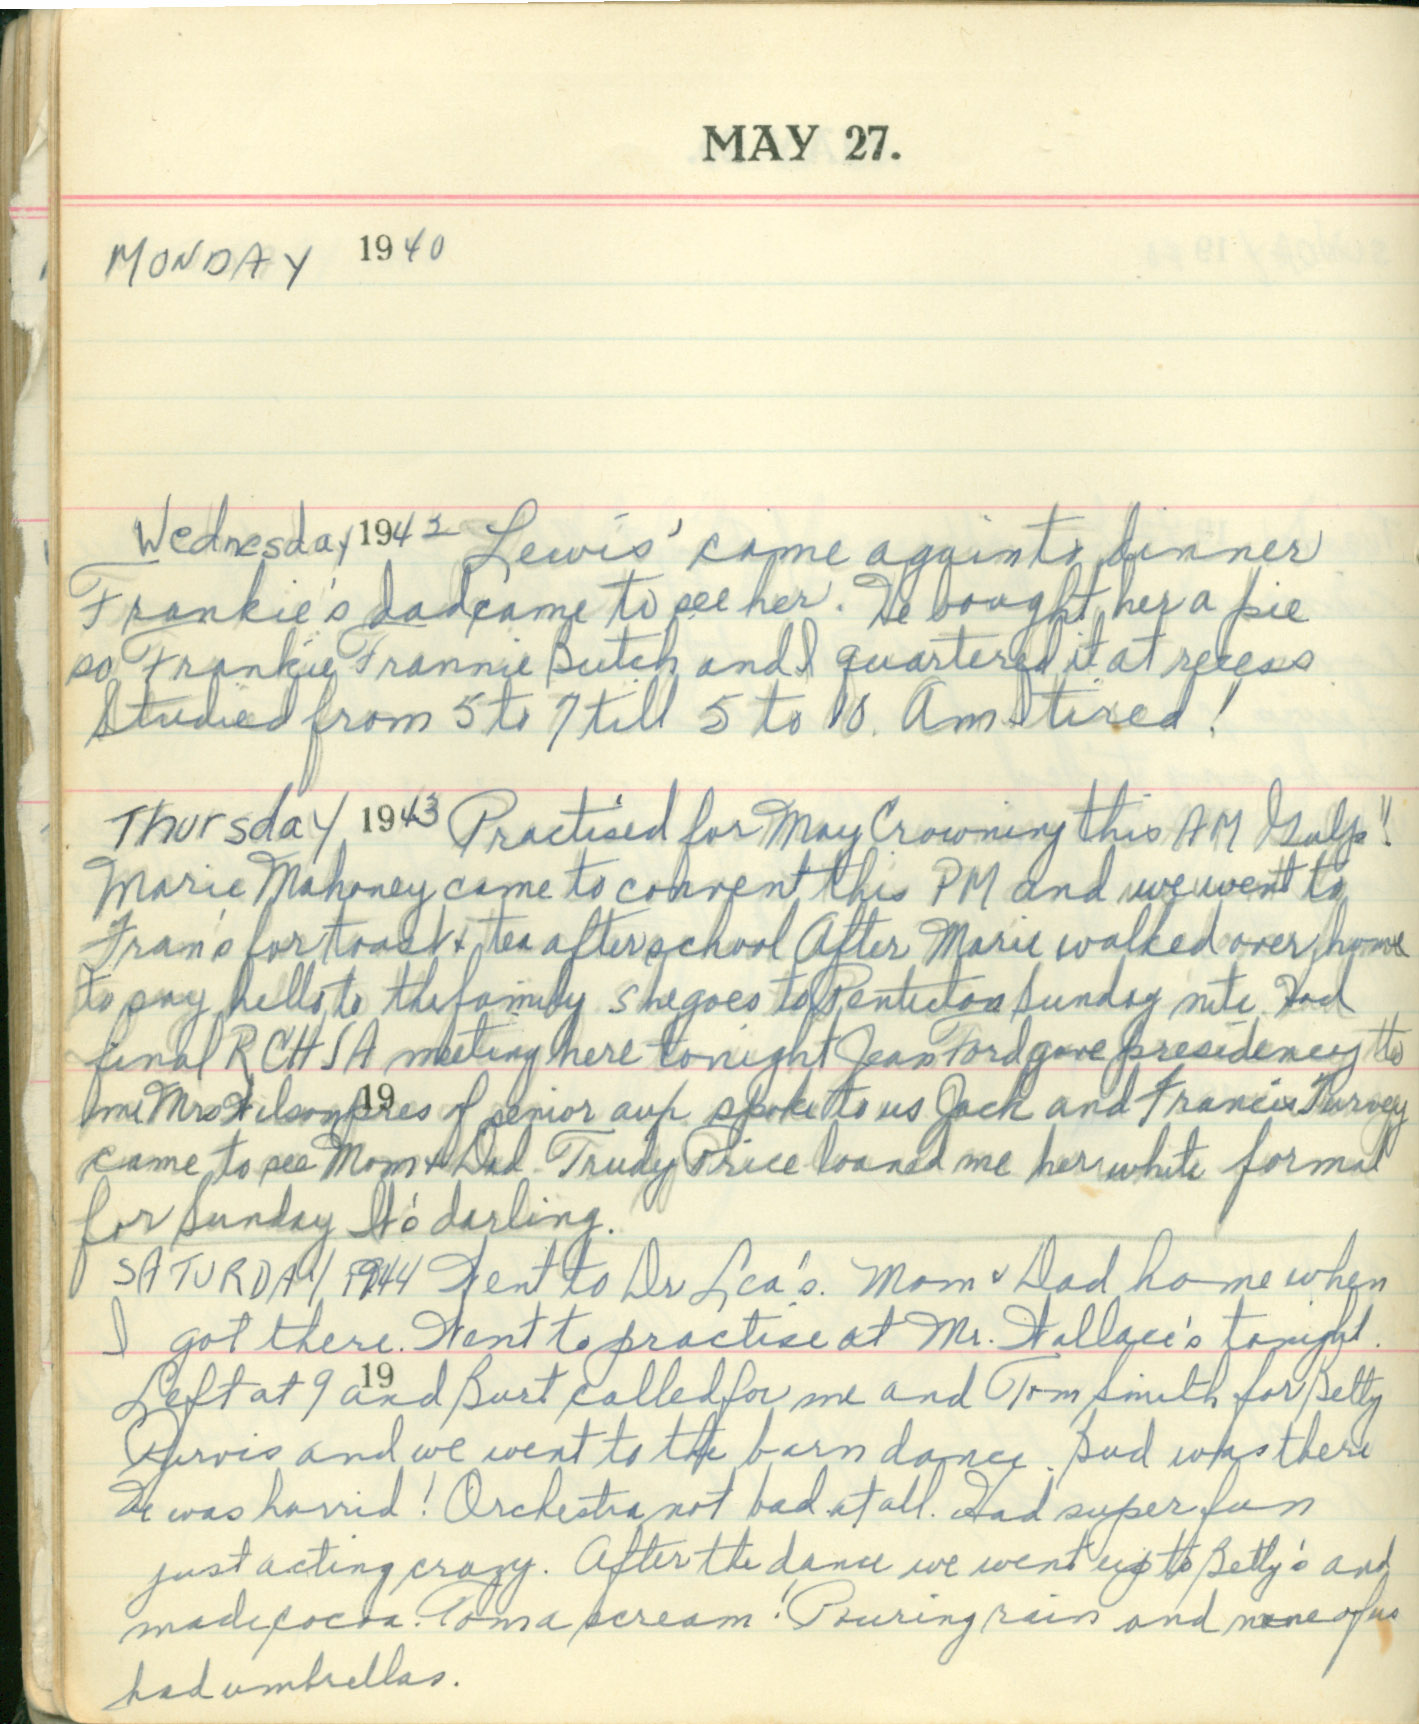 MAY 27.
MONDAY 1940
Wednesday 1942 Lewis' came again to dinner
Frankie's dad came to see her. He bought her a pie
so Frankie Frannie Butch and I quartered it at recess
Studied from 5 to 7 till 5 to 10. Am I tired!
Thursday 1943 Practised for May Crowning this AM Gulp!!
Marie Mahoney came to convent this PM and we went to
Fran's for toast & tea after school After Marie walked over home
to say hello to the family She goes to Penticton Sunday nite. Had
final RCHSA meeting here tonight Jean Ford gave presidency to
me Mrs Wilson pres of senior aux spoke to us Jack and Francis Purvey
19
came to see Mom & Dad. Trudy Price loaned me her white formal
for Sunday It's darling.
SATURDAY 1944 Went to Dr Lea's. Mom & Dad home when
I got there. Went to practise at Mr. Wallace's tonight.
19
Left at 9 and Burt called for me and Tom Smith for Betty
Purvis and we went to the barn dance. Bud was there
He was horrid! Orchestra not bad at all. Had super fun
just acting crazy. After the dance we went up to Betty's and
made cocoa. Tom a scream! Pouring rain and none of us
had umbrellas.